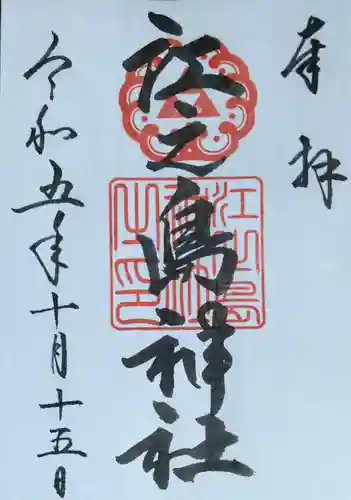 奉拝
江之島神社
令和五年十月十五日
江之島神社之印